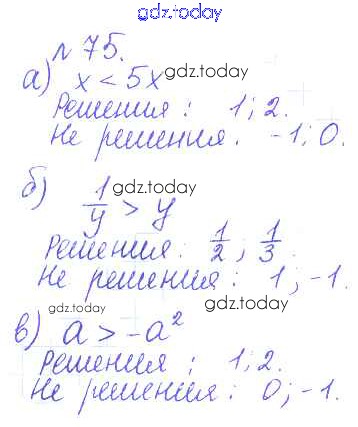 gdz.today
№ 75.
а) x < 5x gdz.today
Решения : 1; 2.
Не решения. -1; 0.
б) 1/y > y gdz.today
Решения. 1/2 ; 1/3.
Не решения : 1; -1.
gdz.today
в) a > -a² gdz.today
Решения ; 1; 2.
Не решения : 0; -1.